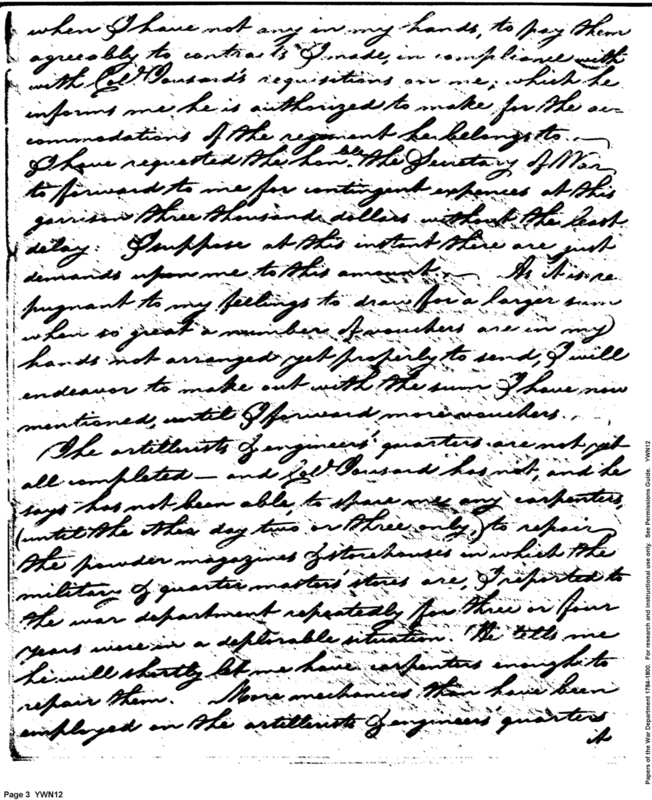 when I have not any in my hands, to pay them
agreeably to contracts I made, in compliance with
with Col. Tousard's requisitions on me, which he
informs me he is authorized to make for the ac-
commodations of the regiment he belongs to. —
I have requested the honble. the Secretary of War
to forward to me for contingent expences at this
garrison three thousand dollars without the least
delay. I suppose at this instant there are just
demands upon me to this amount. — As it is re-
pugnant to my feelings to draw for a larger sum
when so great a number of vouchers are in my
hands not arranged yet properly to send, I will
endeavor to make out with the sum I have now
mentioned, until I forward more vouchers.
The artillerists & engineers' quarters are not yet
all completed — and Col. Tousard has not, and he
says has not been able, to spare me any carpenters,
(until the other day two or three only,) to repair
the powder magazines & storehouses in which the
military & quarter masters' stores are, I reported to
the war department repeatedly for three or four
years were in a deplorable situation. He tells me
he will shortly let me have carpenters enough to
repair them. More mechanics than have been
employed on the artillerists & engineers' quarters
it
Page 3 YWN12
Papers of the War Department 1784-1800. For research and instructional use only. See Permissions Guide. YWN12